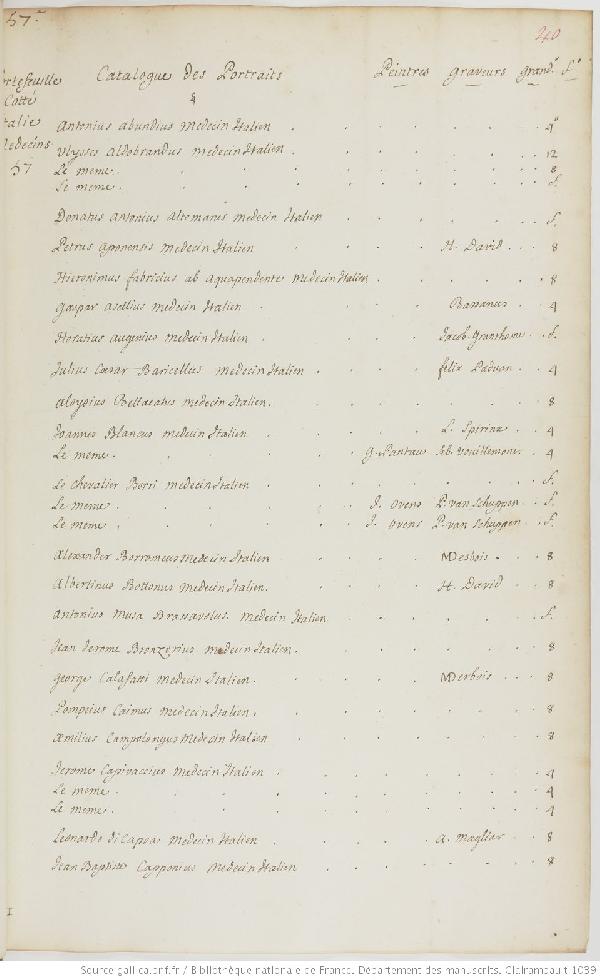 57.
240
Portefeuille Catalogue Des Portraits Peintres graveurs grand.r f.t
Cotté
Italie
Medecins
57
Antonius abundius medecin Italien 4°
Ulysses Aldobrandus medecin Italien 12
Le meme 8
Le meme f.
Donatus Antonius Altomarus medecin Italien f.
Petrus aponensis medecin Italien H. David 8
Hieronimus fabricius ab aquapendente medecin Italien 8
Gaspar asellius medecin Italien Bassanus 4
Horatius augenius medecin Italien Jacob. f.
Julius Cæsar Baricellus medecin Italien felix Paduan 4
Aloysius Bellacatus medecin Italien 8
Joannes Blancus medecin Italien L. 4
Le meme G. Seb. Vouillemont 4
Le Chevalier Borri medecin Italien f.
Le meme J. Ovens P. van Schuppen f.
Le meme J. Ovens P. van Schuppen f.
Alexander Borromeus Medecin Italien M Desbois 8
Albertinus Bottonus Medecin Italien H. David 8
Antonius Musa Brasavolus medecin Italien f.
Jean Jerome Bronzerius medecin Italien 8
George Calafatti medecin Italien M Desbois 8
Pompeius Caimus medecin Italien 8
Æmilius Campolongus Medecin Italien 8
Jerome Capivaccius medecin Italien 4
Le meme 4
Le meme 4
Leonardo di Capoa medecin Italien A. Magliar 8
Jean Baptiste Capponius Medecin Italien 8
Source gallica.bnf.fr / Bibliothèque nationale de France. Département des manuscrits. Clairambault 1039